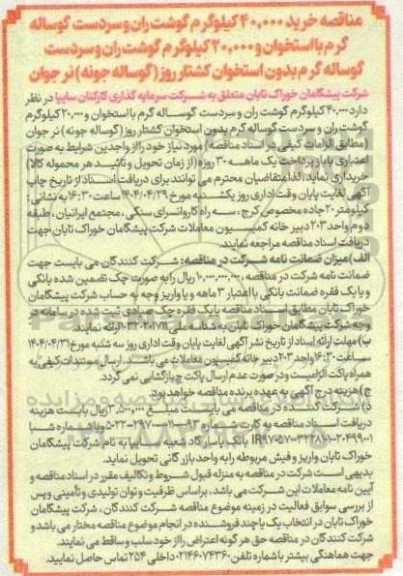 مناقصه خرید ۴۰,۰۰۰ کیلوگرم گوشت ران و سردست گوساله
گرم با استخوان و ۲۰,۰۰۰ کیلوگرم گوشت ران و سردست
گوساله گرم بدون استخوان کشتار روز (گوساله جونه) نر جوان
شرکت پیشگامان خوراک تابان متعلق به شرکت سرمایه گذاری کارکنان سایپا در نظر
دارد ۴۰,۰۰۰ کیلوگرم گوشت ران و سردست گوساله گرم با استخوان و ۲۰,۰۰۰ کیلوگرم
گوشت ران و سردست گوساله گرم بدون استخوان کشتار روز (گوساله جونه) نر جوان
(مطابق الزامات کیفی در اسناد مناقصه) مورد نیاز خود را از واجدین شرایط به صورت
اعتباری با باز پرداخت یک ماهه ۳۰ روزه (از زمان تحویل و تائید هر محموله کالا)
خریداری نماید، لذا متقاضیان محترم می توانند برای دریافت اسناد از تاریخ چاپ
آگهی لغایت پایان وقت اداری روز یکشنبه مورخ ۱۴۰۴/۰۴/۲۹ ساعت ۱۶:۳۰ به نشانی:
کیلومتر ۲۰ جاده مخصوص کرج، سه راه کاروانسرای سنگی، مجتمع ایرانیان، طبقه
دوم واحد ۲۰۳ دبیر خانه کمیسیون معاملات شرکت پیشگامان خوراک تابان جهت
دریافت اسناد مناقصه مراجعه نمایند.
الف) میزان ضمانت نامه شرکت در مناقصه: شرکت کنندگان می بایست جهت
ضمانت نامه شرکت در مناقصه، ۱۰,۰۰۰,۰۰۰,۰۰۰ ریال را به صورت چک تضمین شده بانکی
و یا یک فقره ضمانت بانکی با اعتبار ۳ ماهه و یا واریز وجه به حساب شرکت پیشگامان
خوراک تابان مطابق اسناد مناقصه یا یک فقره چک صیادی ثبت شده در سامانه در
وجه شرکت پیشگامان خوراک تابان به شناسه ملی ارائه نمایند.
ب) مهلت ارائه اسناد از تاریخ نشر آگهی لغایت پایان وقت اداری روز سه شنبه مورخ ۱۴۰۴/۰۴/۳۱
ساعت ۱۶:۳۰ واحد ۲۰۳ دبیر خانه کمیسیون معاملات می باشد. ارسال مستندات کیفی به
همراه پاکت الزامیست و در صورت عدم ارسال پاکت ج بازگشایی نمی گردد.
ج) هزینه درج آگهی به عهده برنده مناقصه خواهد بود.
د) شرکت کننده در مناقصه می بایست مبلغ ریال بابت هزینه
دریافت اسناد مناقصه به کارت شماره و یا شماره شبا
بانک پاسارگاد شعبه سایپا به نام شرکت پیشگامان
خوراک تابان واریز و فیش مربوطه را به واحد بازرگانی تحویل نماید.
بدیهی است شرکت در مناقصه به منزله قبول شروط و تکالیف مقرر در اسناد مناقصه و
آیین نامه معاملات این شرکت می باشد، براساس ظرفیت و توان تولیدی و تأمینی و پس
از بررسی سوابق فعالیت در زمینه موضوع مناقصه شرکت کنندگان، شرکت پیشگامان
خوراک تابان در انتخاب یک یا چند فروشنده در انجام موضوع مناقصه مختار می باشد و
شرکت کنندگان در مناقصه حق هر گونه اعتراض را از خود سلب و ساقط می نمایند.
جهت هماهنگی بیشتر با شماره تلفن ۰۲۱۴۶۰۷۴۳۶۰ داخلی ۲۵۴ تماس حاصل نمایید.